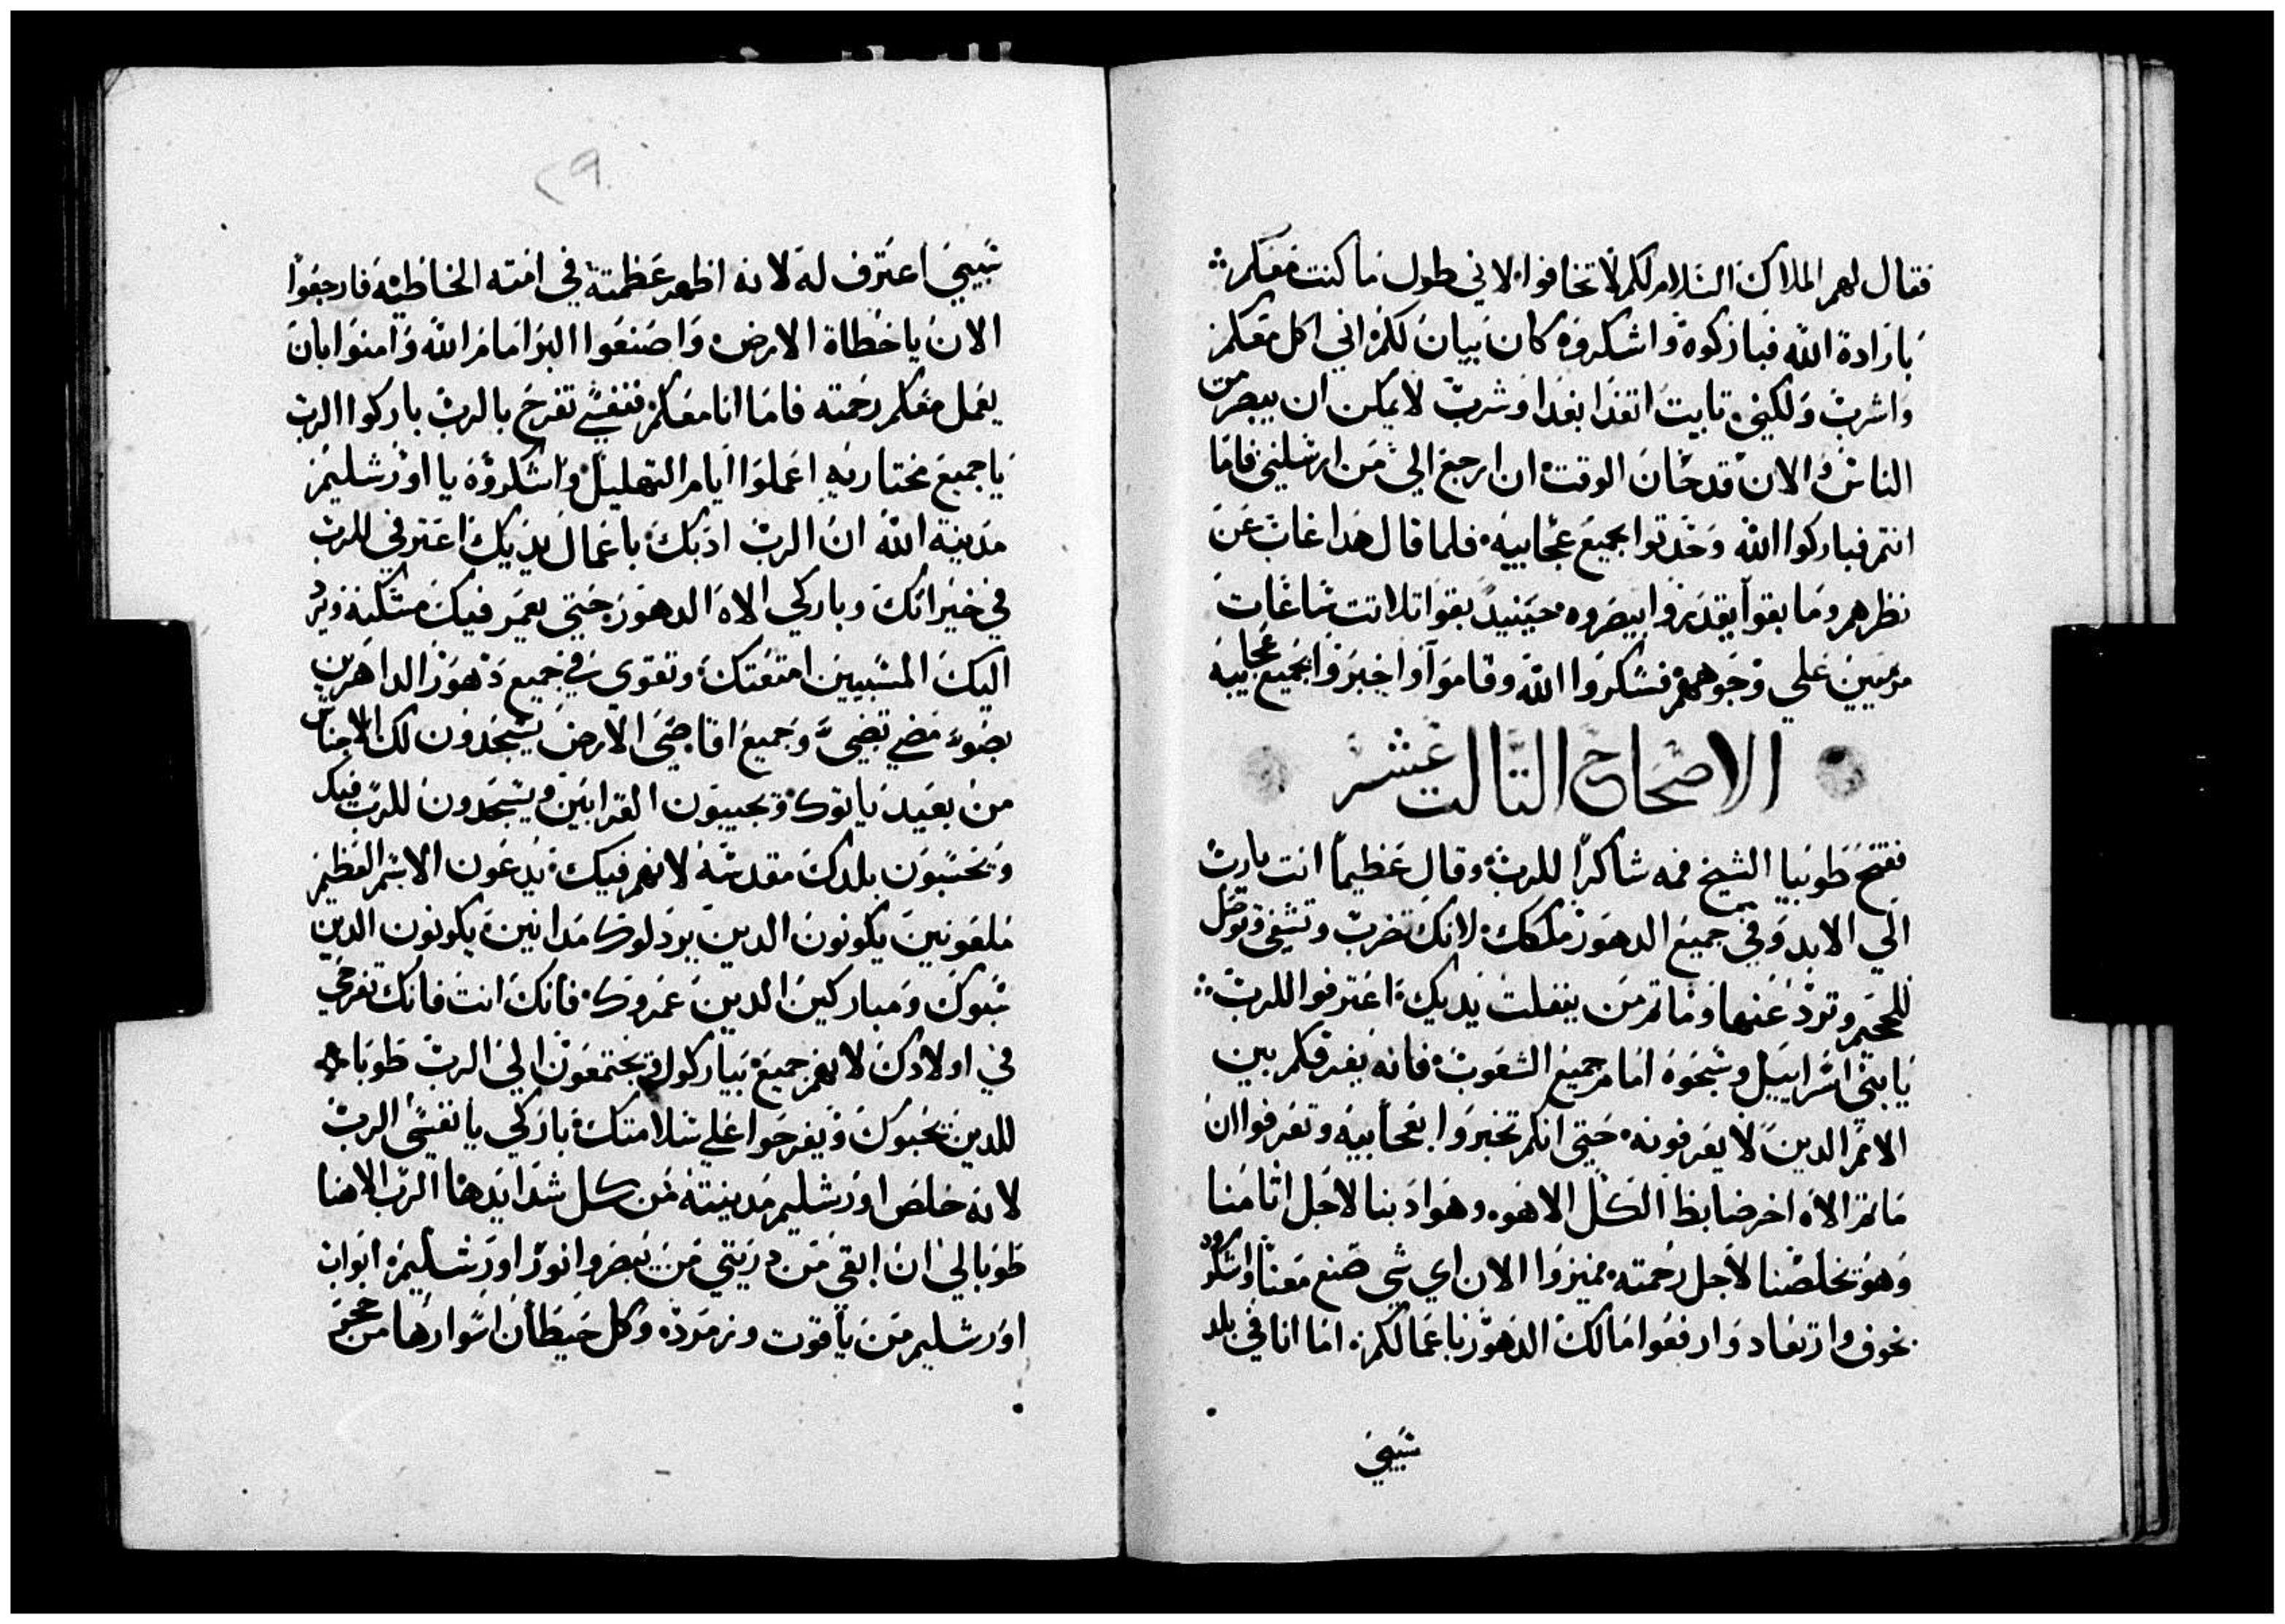 فقال لهم الملاك السلام لكم لا تخافوا لاني طول ما كنت معكم
بارادة الله فباركوه واشكروه كان بيان لكم اني اكل معكم
واشرب ولكني تابيت اتغدا بغدا وشرب لا يمكن ان يبصر من
الناس والان قد حان الوقت ان ارجع الي من ارسلني فاما
انتم فباركوا الله وحدتوا بجميع عجاييه فلما قال هدا غاب عن
نظرهم وما بقوا يقدروا يبصروه حينيد بقوا تلاتت ساعات
مرميين علي وجوههم فشكروا الله وقاموا واخبروا بجميع عجايبه
الاصحاح التالت عشر
ففتح طوبيا الشيخ فمه شاكرا للرب وقال عظيما انت يارب
الي الابد وفي جميع الدهور ملكك لانك تضرب وتشفي وتوصل
للجحيم وترد عنها وما تم من ينفلت يديك اعترفوا للرب
يا بني اسراييل وسبحوه امام جميع الشعوب فانه يفرقكم بين
الامم الدين لا يعرفونه حتي انكم تخبروا بعجاييه وتعرفوا ان
ما تم الاه اخر ضابط الكل الا هو وهو ادبنا لاجل اتامنا
وهو تخلصنا لاجل رحمته ميزوا الان اي شي صنع معنا واشكروه
بخوف وارتعاد وارفعوا مالك الدهور باعمالكم اما انا في بلد
سبيي
٢٩
سبيي اعترف له لانه اظهر عظمته في امته الخاطيه فارجعوا
الان يا خطاة الارض واصنعوا البر امام الله وامنوا بان
يعمل معكم رحمته فاما انا معكم فنفسي تفرح بالرب باركوا الرب
يا جميع مختاريه اعملوا ايام التهليل واشكروه يا اورشليم
مدينة الله ان الرب ادبك باعمال يديك اعترفي للرب
في خيراتك وباركي الاه الدهور حتي يعمر فيك مسكنه ويرد
اليك المسبيين امتعتك وتقوي في جميع دهور الداهرين
بضوء مضي تضي وجميع اقاصي الارض يسجدون لك الاجناس
من بعيد ياتوك ويجيبون القرابين ويسجدون للرب فيك
ويحسبون بلدك مقدسه لانهم فيك يدعون الاسم العظيم
ملعونين يكونون الدين يردلوك مدانين يكونون الدين
سبوك ومباركين الدين عمروك فانك انت فانك تفرحي
في اولادك لانهم جميع يباركوا ويجتمعون الي الرب طوباهم
للدين يحبوك ويفرحوا علي سلامتك باركي يا نفسي الرب
لانه خلص اورشليم مدينته من كل شدايدها الرب الاهنا
طوبا لي ان ابقي من دريتي من يبصروا نور اورشليم ابواب
اورشليم من ياقوت وزمرده وكل حيطان اسوارها من حجر